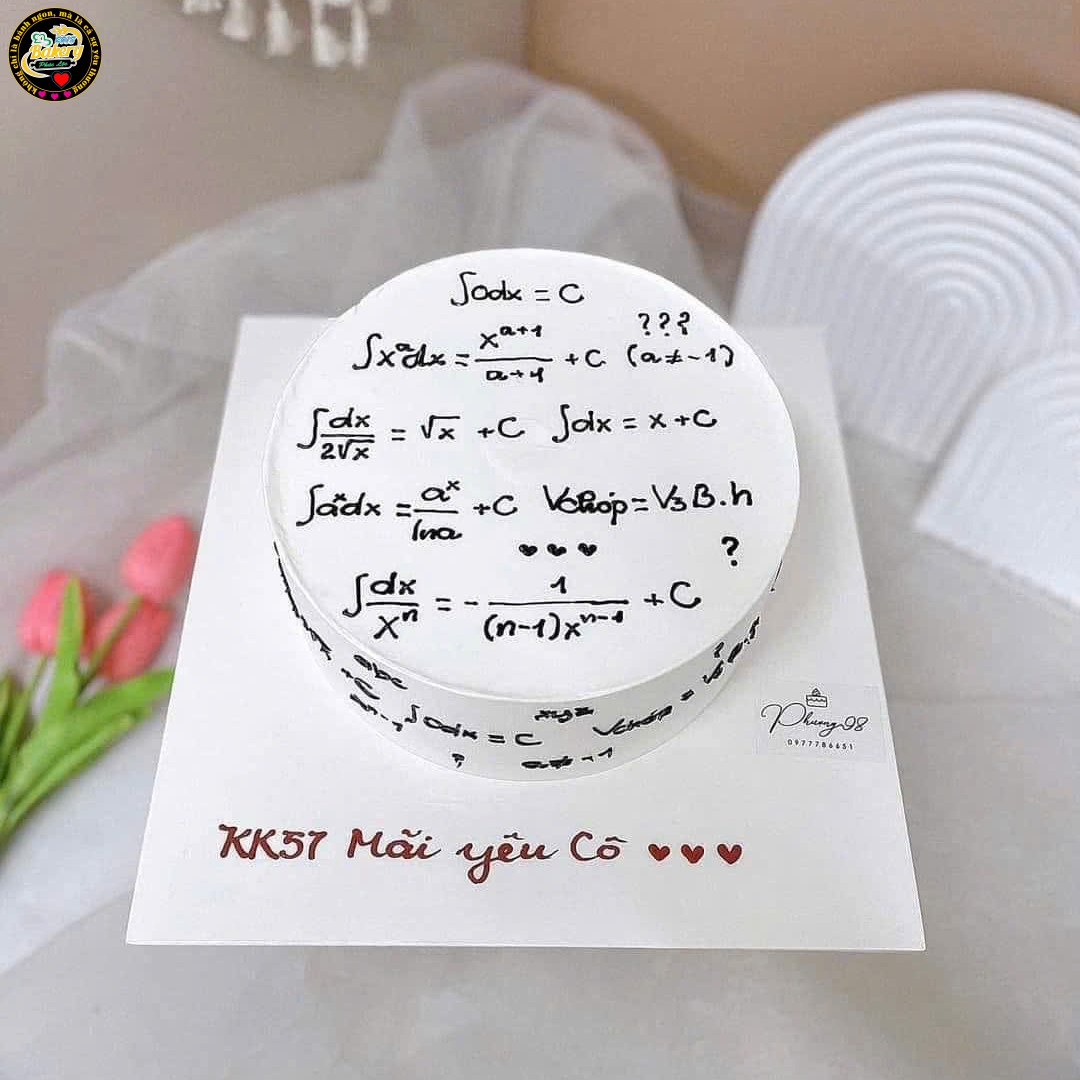 Không chỉ là bánh ngon, mà là cả sự yêu thương
Bakery
∫0dx = C
???
∫x^a dx = x^(a+1)/(a+1) + C (a ≠ -1)
∫dx/(2√x) = √x + C ∫dx = x + C
∫a^x dx = a^x/lna + C Vchóp = 1/3 B.h
♥ ♥ ♥ ?
∫dx/x^n = - 1/((n-1)x^(n-1)) + C
abc
+C
∫0dx = C
xyz
Vchóp =
?
a≠ -1
Phuong98
0977786651
KK57 Mãi yêu Cô ♥ ♥ ♥